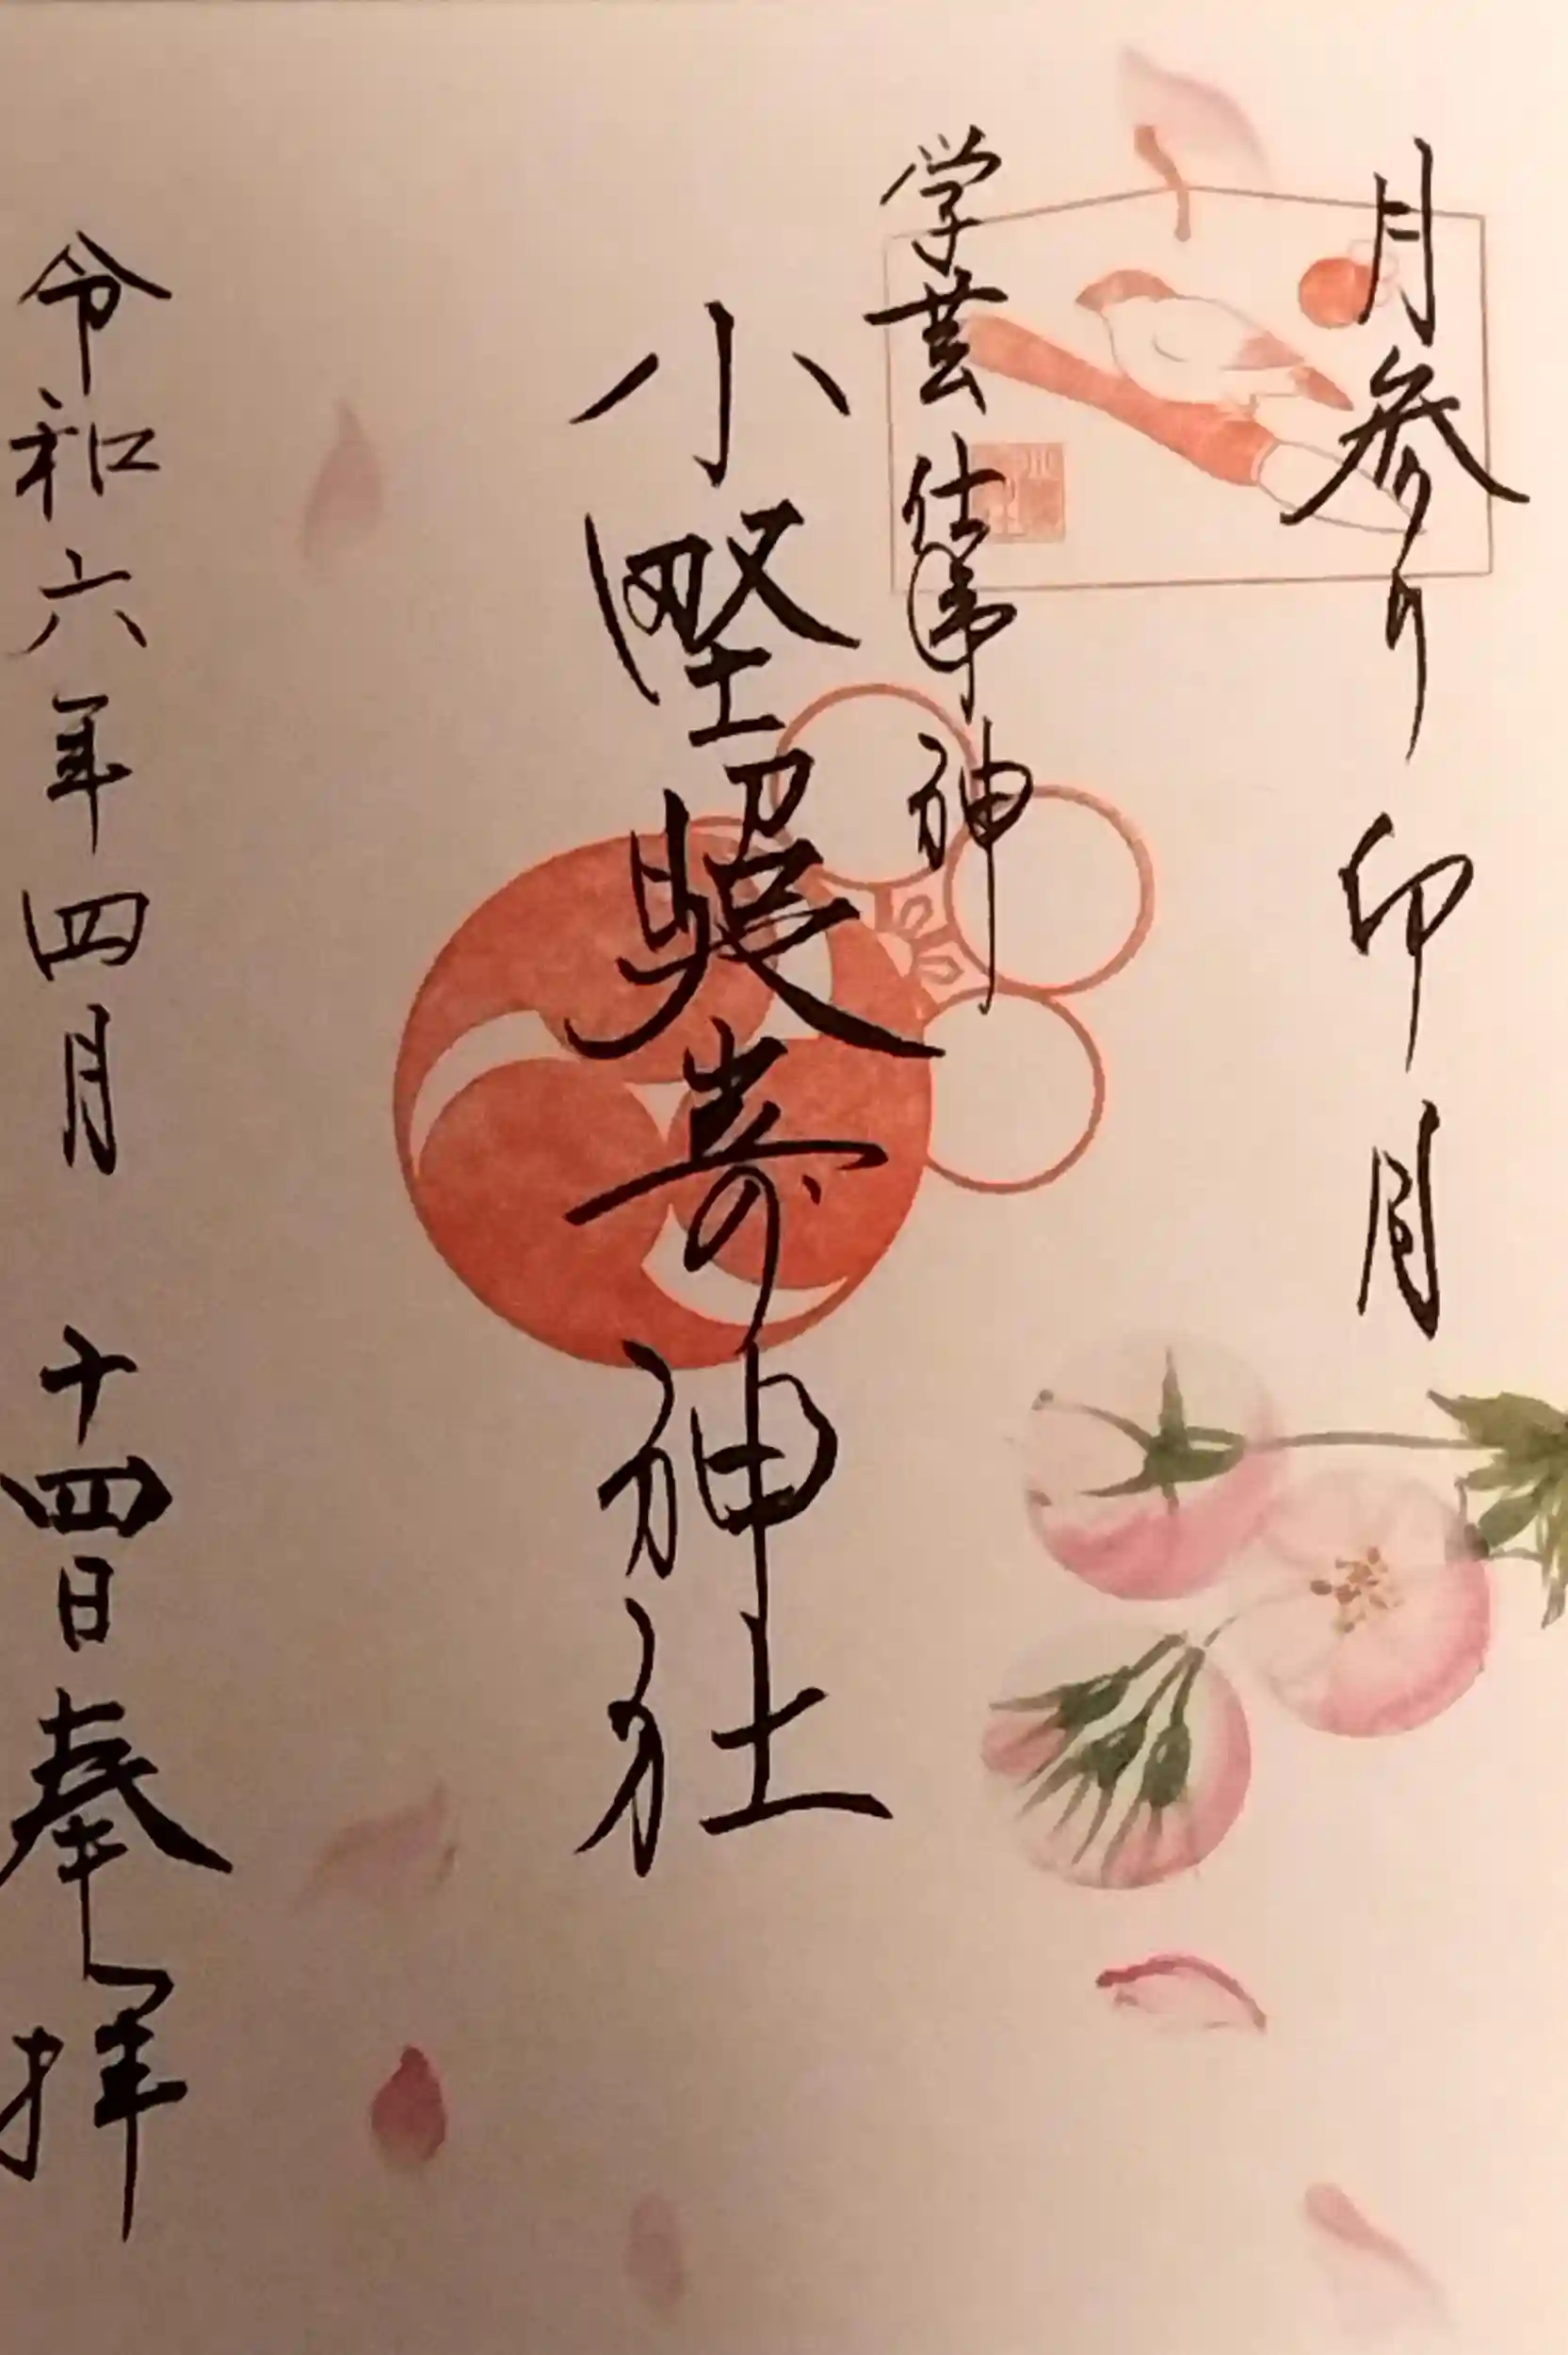 月参り 卯月
学芸 仕事神
小野照崎神社
令和六年四月 十四日奉拝